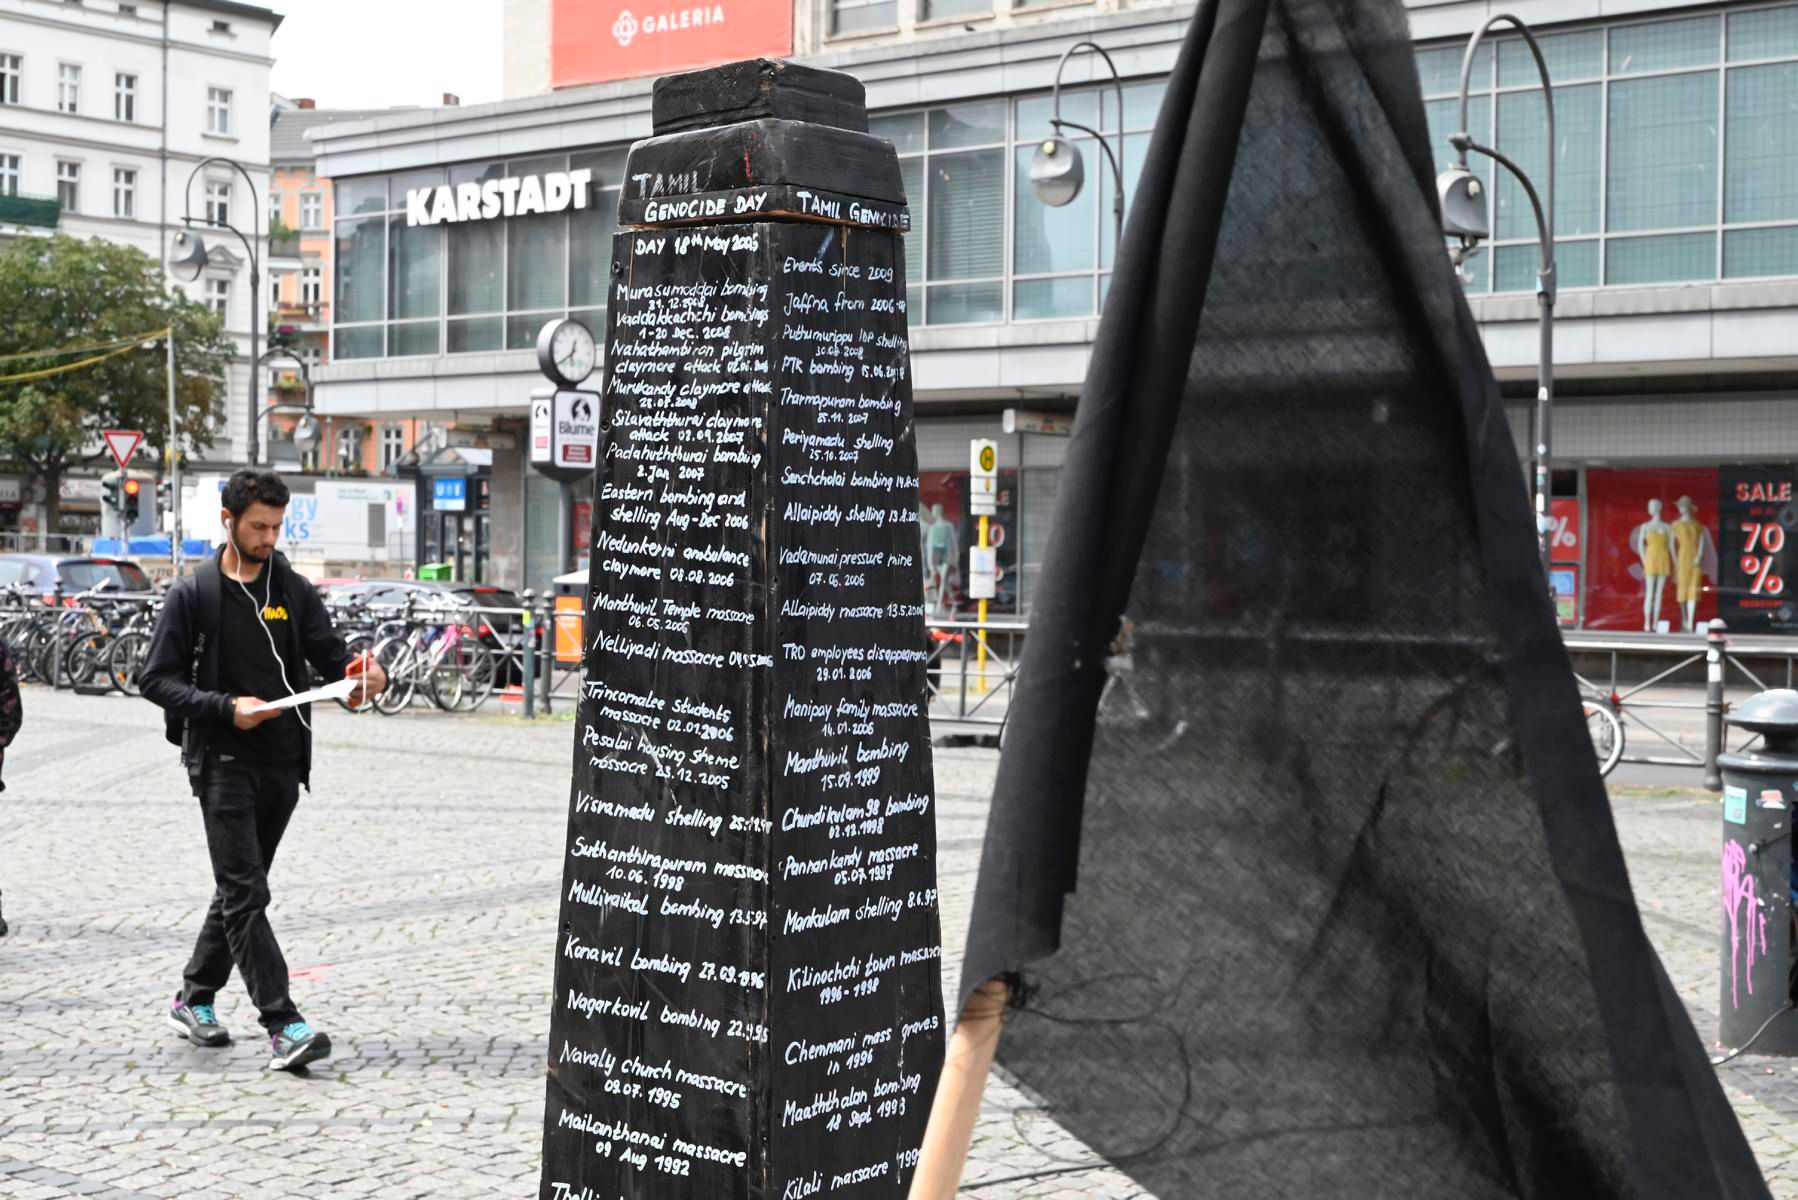 GALERIA
KARSTADT
TAMIL
GENOCIDE DAY
DAY 18th May 2005
Murasumoddai bombing
31.12.2008
Vaddakkachchi bombings
1-20 Dec. 2008
Nahathambiran pilgrim
claymore attack
Murukandy claymore attack
Silavaththurai claymore
attack 02.09.2007
Padahuththurai bombing
2. Jan 2007
Eastern bombing and
shelling Aug-Dec 2006
Nedunkerni ambulance
claymore 08.08.2006
Manthuvil Temple massacre
06.05.2006
Nelliyadi massacre
Trincomalee students
massacre 02.01.2006
Pesalai housing sheme
massacre 23.12.2005
Visvamadu shelling
Suthanthirapuram massacre
10.06.1998
Mullivaikal bombing 13.5.97
Konavil bombing 27.09.1996
Nagarkovil bombing 22.9.95
Navaly church massacre
09.07.1995
Mailanthanai massacre
09 Aug 1992
TAMIL GENOCIDE
Events since 2009
Jaffna from 2006-
Puthumurippu IDP shelling
PTK bombing 15.06.
Tharmapuram bombing
25.11.2007
Periyamadu shelling
25.10.2007
Senchcholai bombing
Allaipiddy shelling
Vadamunai pressure mine
07.06.2006
Allaipiddy massacre 13.5.2006
TRO employees disappearance
29.01.2006
Manipay family massacre
14.01.2006
Manthuvil bombing
15.09.1999
Chundikulam 98 bombing
02.12.1998
Pannankandy massacre
05.07.1997
Mankulam shelling 8.6.97
Kilinochchi town massacre
1996-1998
Chemmani mass graves
in 1996
Maaththalan bombing
18 Sept 1993
Kilali massacre
Blume
U
H
SALE
70
%
%